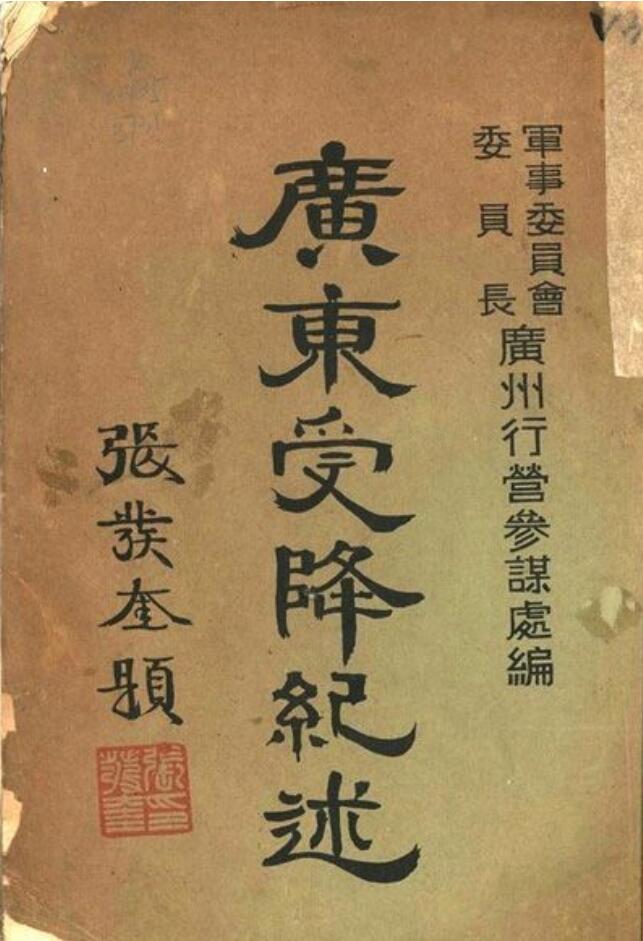 軍事委員會
委員長
廣州行營參謀處編
廣東受降紀述
張發奎題
張印
發奎